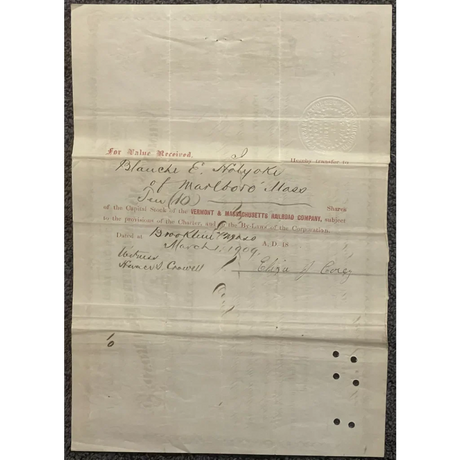 For Value Received, I Hereby transfer to
Blanche E. Holyoke
of Marlboro' Mass
Ten (10) Shares
of the Capital Stock of the VERMONT & MASSACHUSETTS RAILROAD COMPANY, subject
to the provisions of the Charter, and the By-Laws of the Corporation.
Dated at Brookline Mass
March 1, 1909 A. D. 18
Witness
Homer S. Coswell Eliza J. Corey